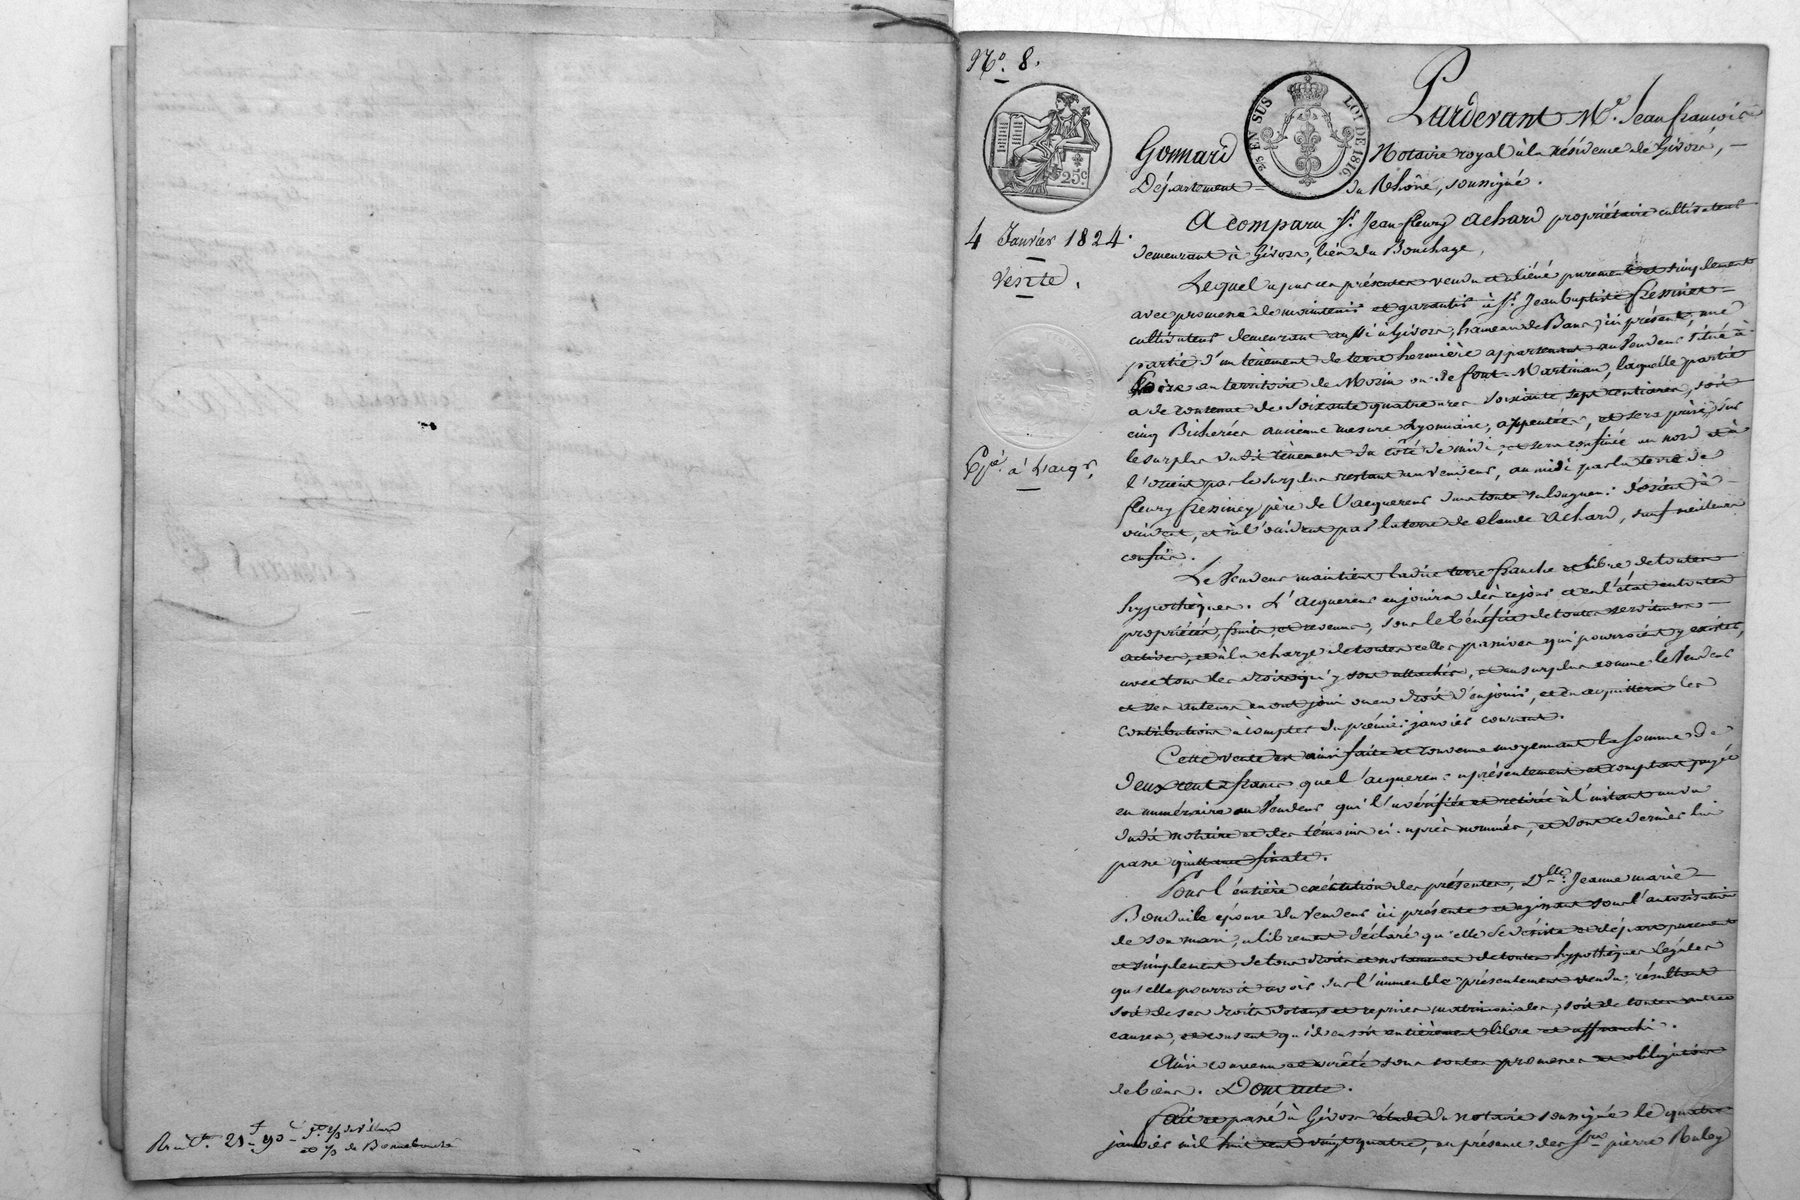 N.º 8.
25 EN SUS
LOI DE 1816.
25.c
Pardevant M.e Jean françois
Gonnard Notaire royal à la résidence de Givors,
Département du Rhône, soussigné.
4 Janvier 1824.
Vente.
A comparu S.r Jean fleury Achard propriétaire cultivateur
demeurant à Givors, lieu du Bouchage,
Lequel a par ces présentes vendu et aliéné purement et simplement
avec promesse de maintenir et garantir à S.r Jean baptiste fressinet
cultivateur demeurant aussi à Givors, hameau de Bans, ici présent, une
partie d'un tènement de terre hermière appartenant au Vendeur situé à
au territoire de Morin ou de font-Martinan, laquelle partie
a de contenue de soixante quatre ares soixante sept centiares, soit
cinq Bicherées ancienne mesure Lyonnaise, et sera prise, sur
le surplus dudit tènement du côté de midi, et sera confinée au nord et à
l'orient par le surplus restant au vendeur, au midi par la terre de
fleury fressiney père de l'acquereur dans toute sa longueur d'orient à
occident, et à l'occident par la terre de claude Achard, sauf meilleurs
confins.
Exp.é à l'acq.r
Le Vendeur maintient ladite terre franche et libre de toutes
hypothèques. L'acquereur en jouira dès ce jour et en l'état en toutes
propriétés, fruits, et revenus, sous le bénéfice de toutes servitudes
actives, et à la charge de toutes celles passives qui pourroient y exister,
avec tous les droits qui y sont attachés, et au surplus comme le Vendeur
et ses auteurs en ont joui ou eu droit d'en jouir, et en acquittera les
contributions à compter du premier janvier courant.
Cette vente est ainsi faite et convenue moyennant la somme de
deux cents francs que l'acquereur a présentement et comptant payée
en numéraire au Vendeur qui l'a vérifiée et retirée à l'instant au vu
dudit notaire et des témoins ci-après nommés, et dont ce dernier lui
passe quittance finale.
Pour l'entière exécution des présentes, D.lle Jeanne marie
épouse du Vendeur ici présente et agissant sous l'autorisation
de son mari, a librement déclaré qu'elle se désiste et départ purement
et simplement de tous droits et notamment de toutes hypothèques légales
qu'elle pourroit avoir sur l'immeuble présentement vendu, résultant
soit de ses droits dotaux et reprises matrimoniales, soit de toutes autres
causes, et consent qu'il en soit entièrement libre et affranchi.
Ainsi convenu et arrêté sous toutes promesses et obligations
de biens. Dont acte.
fait et passé à Givors étude du notaire soussigné le quatre
janvier mil huit cent vingt quatre, en présence des S.rs pierre